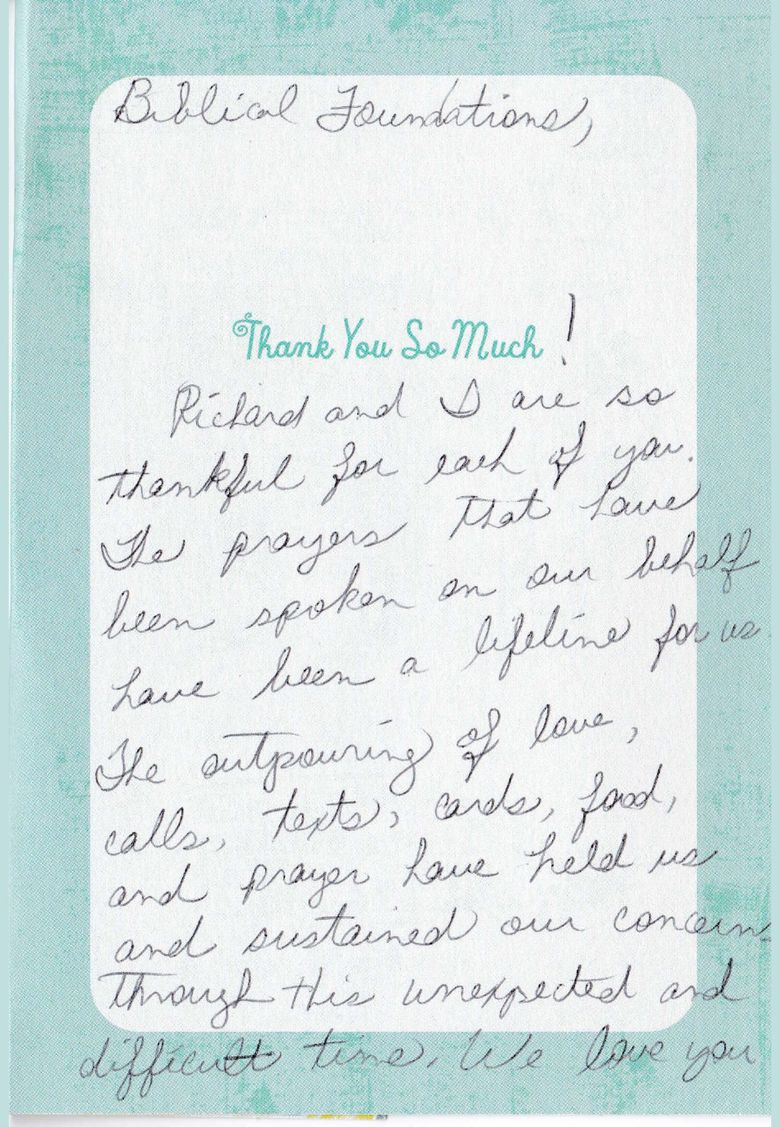 Biblical Foundations,
Thank You So Much!
Richard and I are so
thankful for each of you.
The prayers that have
been spoken on our behalf
have been a lifeline for us
The outpouring of love,
calls, texts, cards, food,
and prayer have held us
and sustained our concern
through this unexpected and
difficult time. We love you